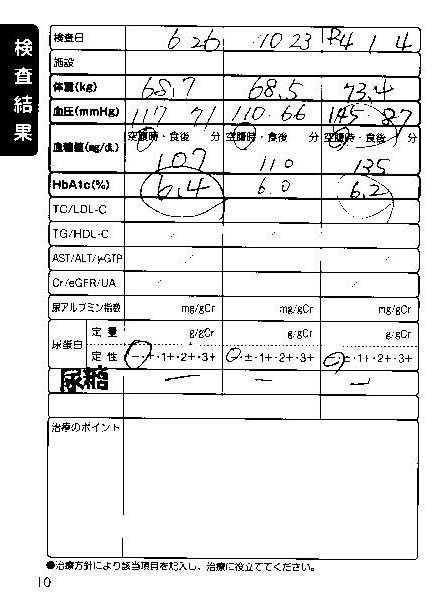 検査結果
検査日 6 26 10 23 R4 1 4
施設
体重(kg) 68.7 68.5 73.4
血圧(mmHg) 117 71 110 66 145 87
血糖値(mg/dL) 空腹時・食後 分 空腹時・食後 分 空腹時・食後 分
107 110 135
HbA1c(%) 6.4 6.0 6.2
TC/LDL-C
TG/HDL-C / / /
AST/ALT/γGTP / / /
Cr/eGFR/UA / / /
尿アルブミン指数 mg/gCr mg/gCr mg/gCr
尿蛋白 定量 g/gCr g/gCr g/gCr
定性 −・±・1+・2+・3+ −・±・1+・2+・3+ −・±・1+・2+・3+
尿糖 − − −
治療のポイント
●治療方針により該当項目を記入し、治療に役立ててください。
10